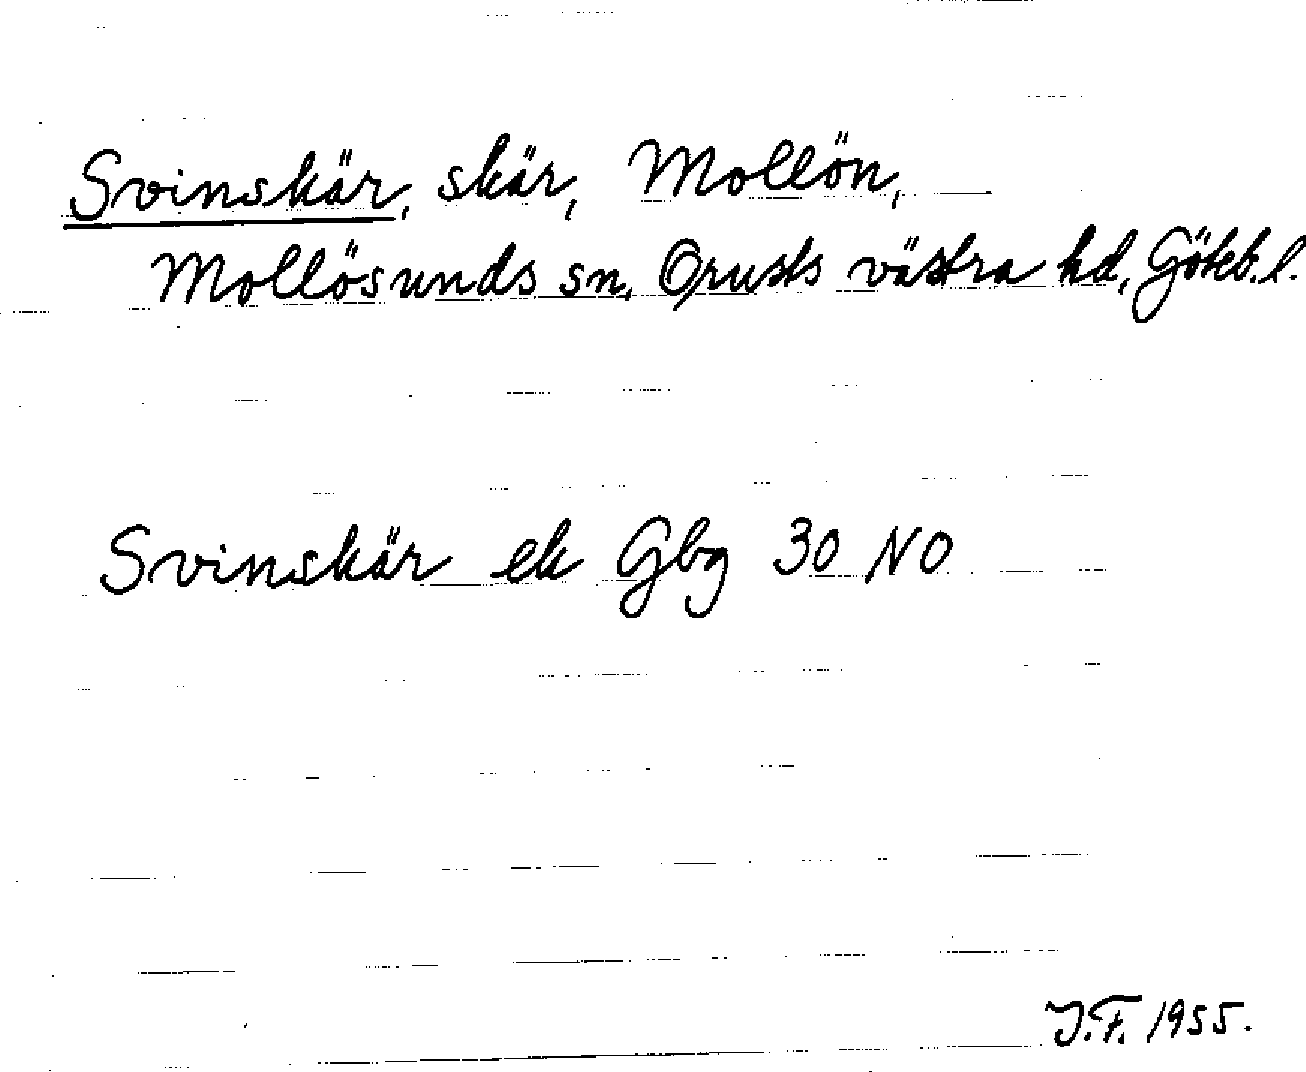 Svinskär, skär, Mollön,
Mollösunds sn, Orusts västra hd, Göteb. l.
Svinskär ek Gbg 30 NO
J.F. 1955.